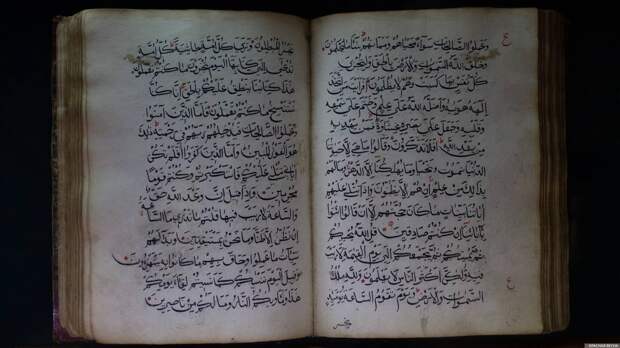 وعملوا الصالحات سواء محياهم ومماتهم ساء ما يحكمون
وخلق الله السموات والارض بالحق ولتجزى
كل نفس بما كسبت وهم لا يظلمون افرايت من اتخذ
الهه هويه واضله الله على علم وختم على سمعه
وقلبه وجعل على بصره غشاوة فمن يهديه
من بعد الله افلا تذكرون وقالوا ما هي الا حياتنا
الدنيا نموت ونحيا وما يهلكنا الا الدهر وما لهم
بذلك من علم ان هم الا يظنون واذا تتلى عليهم
اياتنا بينات ما كان حجتهم الا ان قالوا ائتوا
بابائنا ان كنتم صادقين قل الله يحييكم
ثم يميتكم ثم يجمعكم الى يوم القيمة لا ريب
فيه ولكن اكثر الناس لا يعلمون ولله ملك
السموات والارض ويوم تقوم الساعة يومئذ
يخسر
يخسر المبطلون وترى كل امة جاثية كل امة
تدعى الى كتابها اليوم تجزون ما كنتم تعملون
هذا كتابنا ينطق عليكم بالحق انا كنا
نستنسخ ما كنتم تعملون فاما الذين امنوا
وعملوا الصالحات فيدخلهم ربهم في رحمته ذلك
هو الفوز المبين واما الذين كفروا افلم تكن
اياتي تتلى عليكم فاستكبرتم وكنتم قوما
مجرمين واذا قيل ان وعد الله حق
والساعة لا ريب فيها قلتم ما ندري ما الساعة
ان نظن الا ظنا وما نحن بمستيقنين وبدا لهم
سيئات ما عملوا وحاق بهم ما كانوا به يستهزؤن
وقيل اليوم ننسيكم كما نسيتم لقاء يومكم
هذا وماويكم النار وما لكم من ناصرين